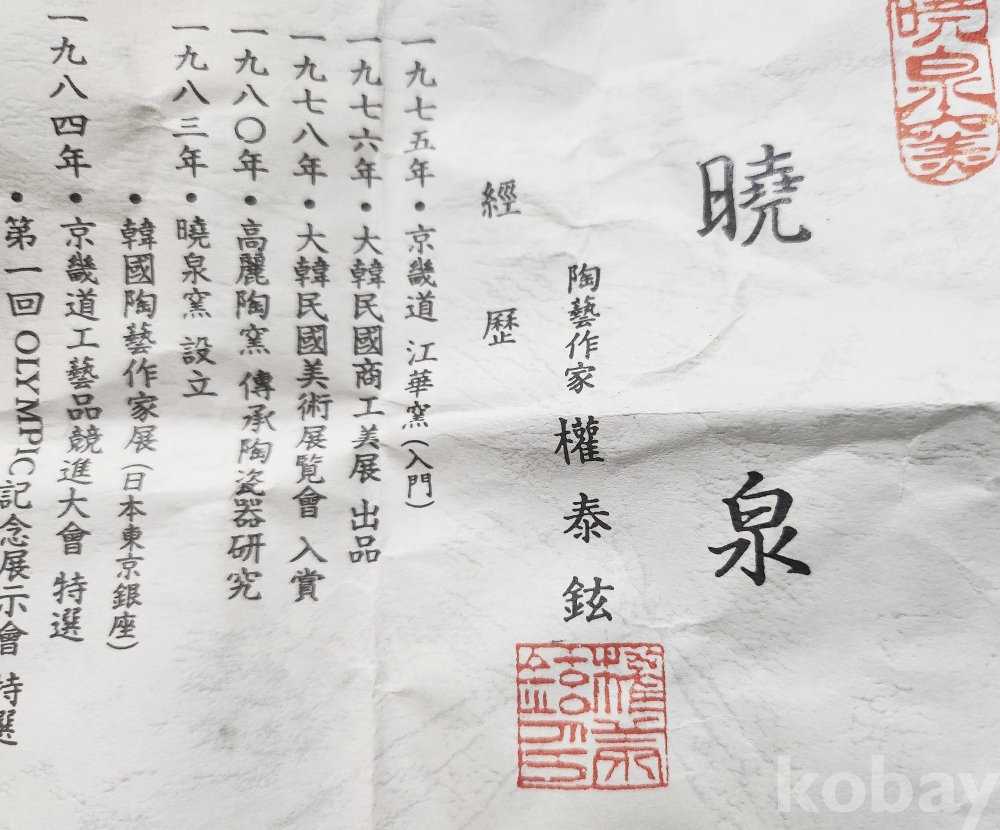 曉泉窯
曉泉
陶藝作家 權泰鉉
權泰鉉印
經歷
一九七五年 • 京畿道 江華窯(入門)
一九七六年 • 大韓民國商工美展 出品
一九七八年 • 大韓民國美術展覽會 入賞
一九八〇年 • 高麗陶窯 傳承陶瓷器研究
一九八三年 • 曉泉窯 設立
• 韓國陶藝作家展(日本東京銀座)
一九八四年 • 京畿道工藝品競進大會 特選
• 第一回 OLYMPIC記念展示會 特選
kobay